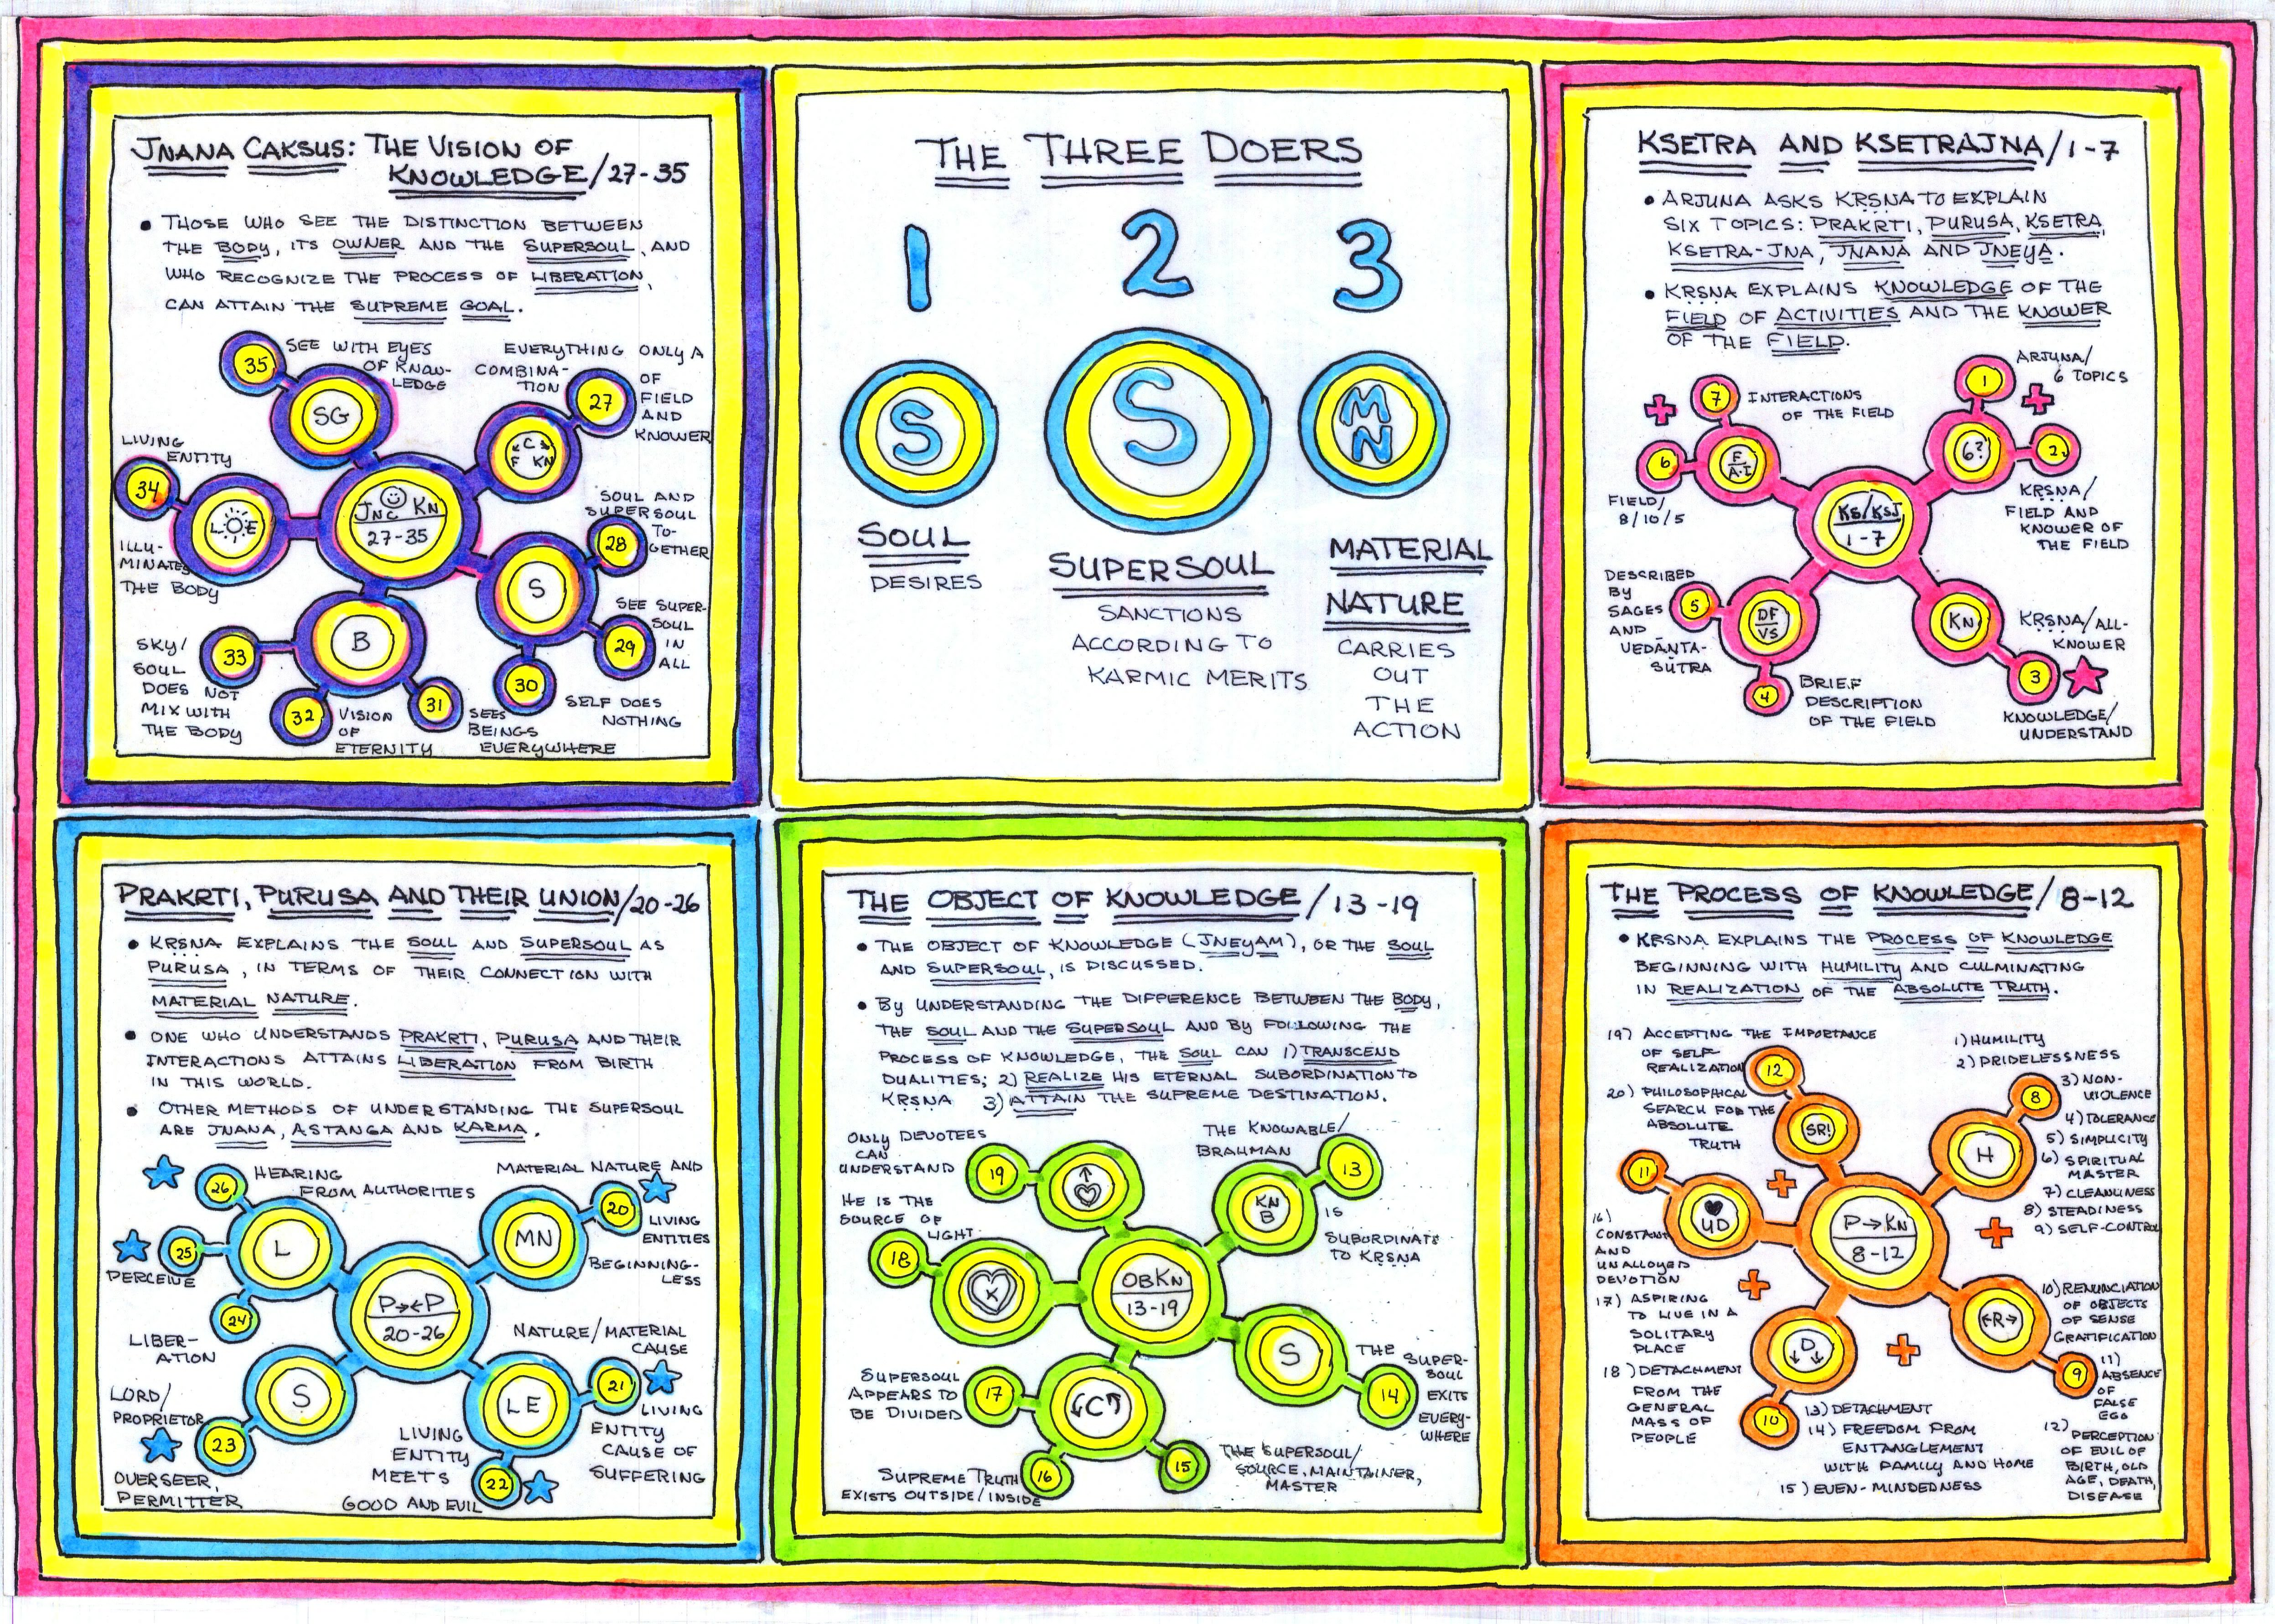 JNANA CAKSUS: THE VISION OF
KNOWLEDGE/27-35
• THOSE WHO SEE THE DISTINCTION BETWEEN
THE BODY, ITS OWNER AND THE SUPERSOUL, AND
WHO RECOGNIZE THE PROCESS OF LIBERATION,
CAN ATTAIN THE SUPREME GOAL.
35
SEE WITH EYES
OF KNOW-
LEDGE
SG
EVERYTHING ONLY A
COMBINA-
TION
OF
FIELD
AND
KNOWER
27
C
F KN
LIVING
ENTITY
34
L E
ILLU-
MINATES
THE BODY
JNC KN
27-35
SOUL AND
SUPERSOUL
TO-
GETHER
28
S
SEE SUPER-
SOUL
IN
ALL
29
30
SELF DOES
NOTHING
B
SKY/
SOUL
DOES NOT
MIX WITH
THE BODY
33
32
VISION
OF
ETERNITY
31
SEES
BEINGS
EVERYWHERE
THE THREE DOERS
1
2
3
S
S
M
N
SOUL
DESIRES
SUPERSOUL
SANCTIONS
ACCORDING TO
KARMIC MERITS
MATERIAL
NATURE
CARRIES
OUT
THE
ACTION
KSETRA AND KSETRAJNA/1-7
• ARJUNA ASKS KRSNA TO EXPLAIN
SIX TOPICS: PRAKRTI, PURUSA, KSETRA,
KSETRA-JNA, JNANA AND JNEYA.
• KRSNA EXPLAINS KNOWLEDGE OF THE
FIELD OF ACTIVITIES AND THE KNOWER
OF THE FIELD.
7
INTERACTIONS
OF THE FIELD
1
ARJUNA/
6 TOPICS
6
F
A·I
FIELD/
8/10/5
6?
2
KRSNA/
FIELD AND
KNOWER OF
THE FIELD
KS/KSJ
1-7
DESCRIBED
BY
SAGES
AND
VEDANTA-
SUTRA
5
DF
VS
4
BRIEF
DESCRIPTION
OF THE FIELD
KN
KRSNA/ALL-
KNOWER
3
KNOWLEDGE/
UNDERSTAND
PRAKRTI, PURUSA AND THEIR UNION/20-26
• KRSNA EXPLAINS THE SOUL AND SUPERSOUL AS
PURUSA, IN TERMS OF THEIR CONNECTION WITH
MATERIAL NATURE.
• ONE WHO UNDERSTANDS PRAKRTI, PURUSA AND THEIR
INTERACTIONS ATTAINS LIBERATION FROM BIRTH
IN THIS WORLD.
• OTHER METHODS OF UNDERSTANDING THE SUPERSOUL
ARE JNANA, ASTANGA AND KARMA.
26
HEARING
FROM AUTHORITIES
25
PERCEIVE
L
24
LIBER-
ATION
MATERIAL NATURE AND
MN
20
LIVING
ENTITIES
BEGINNING-
LESS
P→←P
20-26
NATURE/MATERIAL
CAUSE
LE
21
LIVING
ENTITY
CAUSE OF
SUFFERING
LIVING
ENTITY
MEETS
GOOD AND EVIL
22
S
LORD/
PROPRIETOR
23
OVERSEER,
PERMITTER
THE OBJECT OF KNOWLEDGE/13-19
• THE OBJECT OF KNOWLEDGE (JNEYAM), OR THE SOUL
AND SUPERSOUL, IS DISCUSSED.
• BY UNDERSTANDING THE DIFFERENCE BETWEEN THE BODY,
THE SOUL AND THE SUPERSOUL AND BY FOLLOWING THE
PROCESS OF KNOWLEDGE, THE SOUL CAN 1) TRANSCEND
DUALITIES; 2) REALIZE HIS ETERNAL SUBORDINATION TO
KRSNA 3) ATTAIN THE SUPREME DESTINATION.
ONLY DEVOTEES
CAN
UNDERSTAND
19
THE KNOWABLE/
BRAHMAN
KN
B
13
IS
SUBORDINATE
TO KRSNA
HE IS THE
SOURCE OF
LIGHT
18
K
OBKN
13-19
S
THE SUPER-
SOUL
EXITS
EVERY-
WHERE
14
SUPERSOUL
APPEARS TO
BE DIVIDED
17
C
SUPREME TRUTH
EXISTS OUTSIDE/INSIDE
16
15
THE SUPERSOUL/
SOURCE, MAINTAINER,
MASTER
THE PROCESS OF KNOWLEDGE/8-12
• KRSNA EXPLAINS THE PROCESS OF KNOWLEDGE
BEGINNING WITH HUMILITY AND CULMINATING
IN REALIZATION OF THE ABSOLUTE TRUTH.
19) ACCEPTING THE IMPORTANCE
OF SELF-
REALIZATION
12
20) PHILOSOPHICAL
SEARCH FOR THE
ABSOLUTE
TRUTH
SR!
1) HUMILITY
2) PRIDELESSNESS
3) NON-
VIOLENCE
4) TOLERANCE
5) SIMPLICITY
6) SPIRITUAL
MASTER
7) CLEANLINESS
8) STEADINESS
9) SELF-CONTROL
8
H
11
UD
P→KN
8-12
16)
CONSTANT
AND
UNALLOYED
DEVOTION
17) ASPIRING
TO LIVE IN A
SOLITARY
PLACE
18) DETACHMENT
FROM THE
GENERAL
MASS OF
PEOPLE
←R→
9
10) RENUNCIATION
OF OBJECTS
OF SENSE
GRATIFICATION
11)
ABSENCE
OF
FALSE
EGO
12)
PERCEPTION
OF EVIL OF
BIRTH, OLD
AGE, DEATH,
DISEASE
D
10
13) DETACHMENT
14) FREEDOM FROM
ENTANGLEMENT
WITH FAMILY AND HOME
15) EVEN-MINDEDNESS